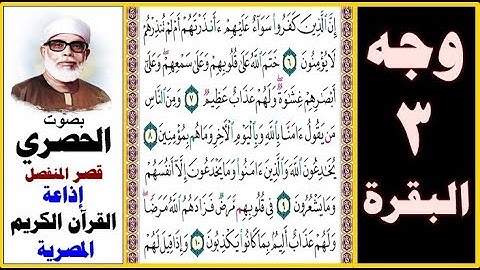 وجه
٣
البقرة
إِنَّ ٱلَّذِينَ كَفَرُوا۟ سَوَآءٌ عَلَيْهِمْ ءَأَنذَرْتَهُمْ أَمْ لَمْ تُنذِرْهُمْ
لَا يُؤْمِنُونَ ٦ خَتَمَ ٱللَّهُ عَلَىٰ قُلُوبِهِمْ وَعَلَىٰ سَمْعِهِمْ ۖ وَعَلَىٰٓ
أَبْصَٰرِهِمْ غِشَٰوَةٌ ۖ وَلَهُمْ عَذَابٌ عَظِيمٌ ٧ وَمِنَ ٱلنَّاسِ
مَن يَقُولُ ءَامَنَّا بِٱللَّهِ وَبِٱلْيَوْمِ ٱلْءَاخِرِ وَمَا هُم بِمُؤْمِنِينَ ٨
يُخَٰدِعُونَ ٱللَّهَ وَٱلَّذِينَ ءَامَنُوا۟ وَمَا يَخْدَعُونَ إِلَّآ أَنفُسَهُمْ
وَمَا يَشْعُرُونَ ٩ فِى قُلُوبِهِم مَّرَضٌ فَزَادَهُمُ ٱللَّهُ مَرَضًا ۖ
وَلَهُمْ عَذَابٌ أَلِيمٌۢ بِمَا كَانُوا۟ يَكْذِبُونَ ١٠ وَإِذَا قِيلَ لَهُمْ
بصوت
الحصري
قصر المنفصل
إذاعة
القرآن الكريم
المصرية